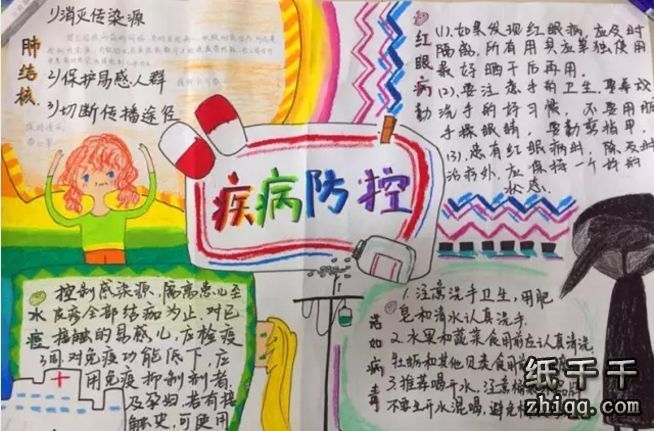 肺结核
1)消灭传染源
2)保护易感人群
3)切断传播途径
疾病防控
红眼病
(1).如果发现红眼病,应及时
隔离,所有用具应单独使用
最好晒干后再用.
(2).要注意手的卫生.要养成
勤洗手的好习惯,不要用脏
手揉眼睛,要勤剪指甲.
(3).患有红眼病时,除及时
治疗外,应保持一个好的
状态.
水痘
控制感染源,隔离患儿至
皮疹全部结痂为止,对已
接触的易感儿,应检疫
3周.对免疫功能低下,应
用免疫抑制剂者
及孕妇,若有接
触史,可使用
诺如病毒
1.注意洗手卫生,用肥
皂和清水认真洗手.
2.水果和蔬菜食用前应认真清洗
牡蛎和其他贝类食用前
3.推荐喝开水,注意
不要生开水混喝,避免
纸千千
zhiqq.com